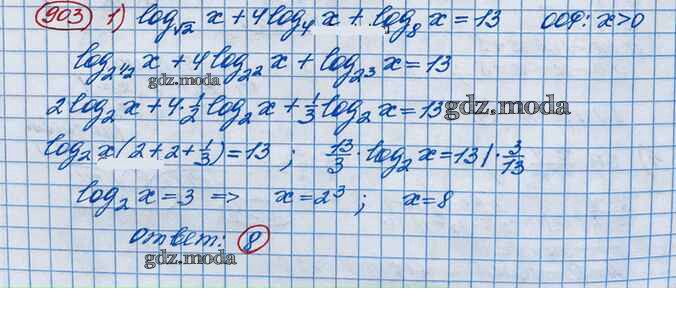 903 1) log_√2 x + 4log_4 x + log_8 x = 13 ООФ: x>0
log_2^1/2 x + 4log_2^2 x + log_2^3 x = 13
gdz.moda
2log_2 x + 4·1/2 log_2 x + 1/3 log_2 x = 13
gdz.moda
log_2 x(2+2+1/3) = 13 ; 13/3 · log_2 x = 13 | · 3/13
log_2 x = 3 => x = 2^3 ; x = 8
gdz.moda
Ответ: 8
gdz.moda